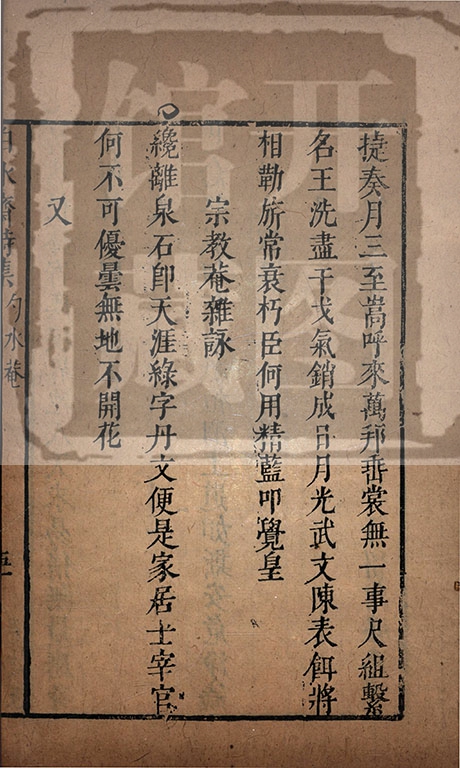 捷奏月三至嵩呼來萬邦垂裳無一事尺組繫
名王洗盡干戈氣銷成日月光武文陳表餌將
相勒旂常衰朽臣何用精藍叩覺皇
宗教菴雜詠
纔離泉石卽天涯綠字丹文便是家居士宰官
何不可優曇無地不開花
又